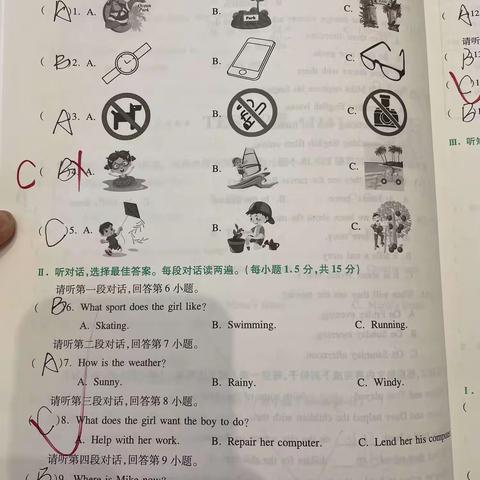 (A)1. A. Ocean Park B. Park C.
(B)2. A. B. C.
(A)3. A. B. C.
C (B)4. A. B. C.
(C)5. A. B. C.
Ⅱ. 听对话,选择最佳答案。每段对话读两遍。(每小题1.5分,共15分)
请听第一段对话,回答第6小题。
(B)6. What sport does the girl like?
A. Skating. B. Swimming. C. Running.
请听第二段对话,回答第7小题。
(A)7. How is the weather?
A. Sunny. B. Rainy. C. Windy.
请听第三段对话,回答第8小题。
(C)8. What does the girl want the boy to do?
A. Help with her work. B. Repair her computer. C. Lend her his
请听第四段对话,回答第9小题。
(B)9. Where is Mike now?
(A)12
请听
(B)1
(C)1
(B)1
Ⅲ. 听短
Ⅰ.
(